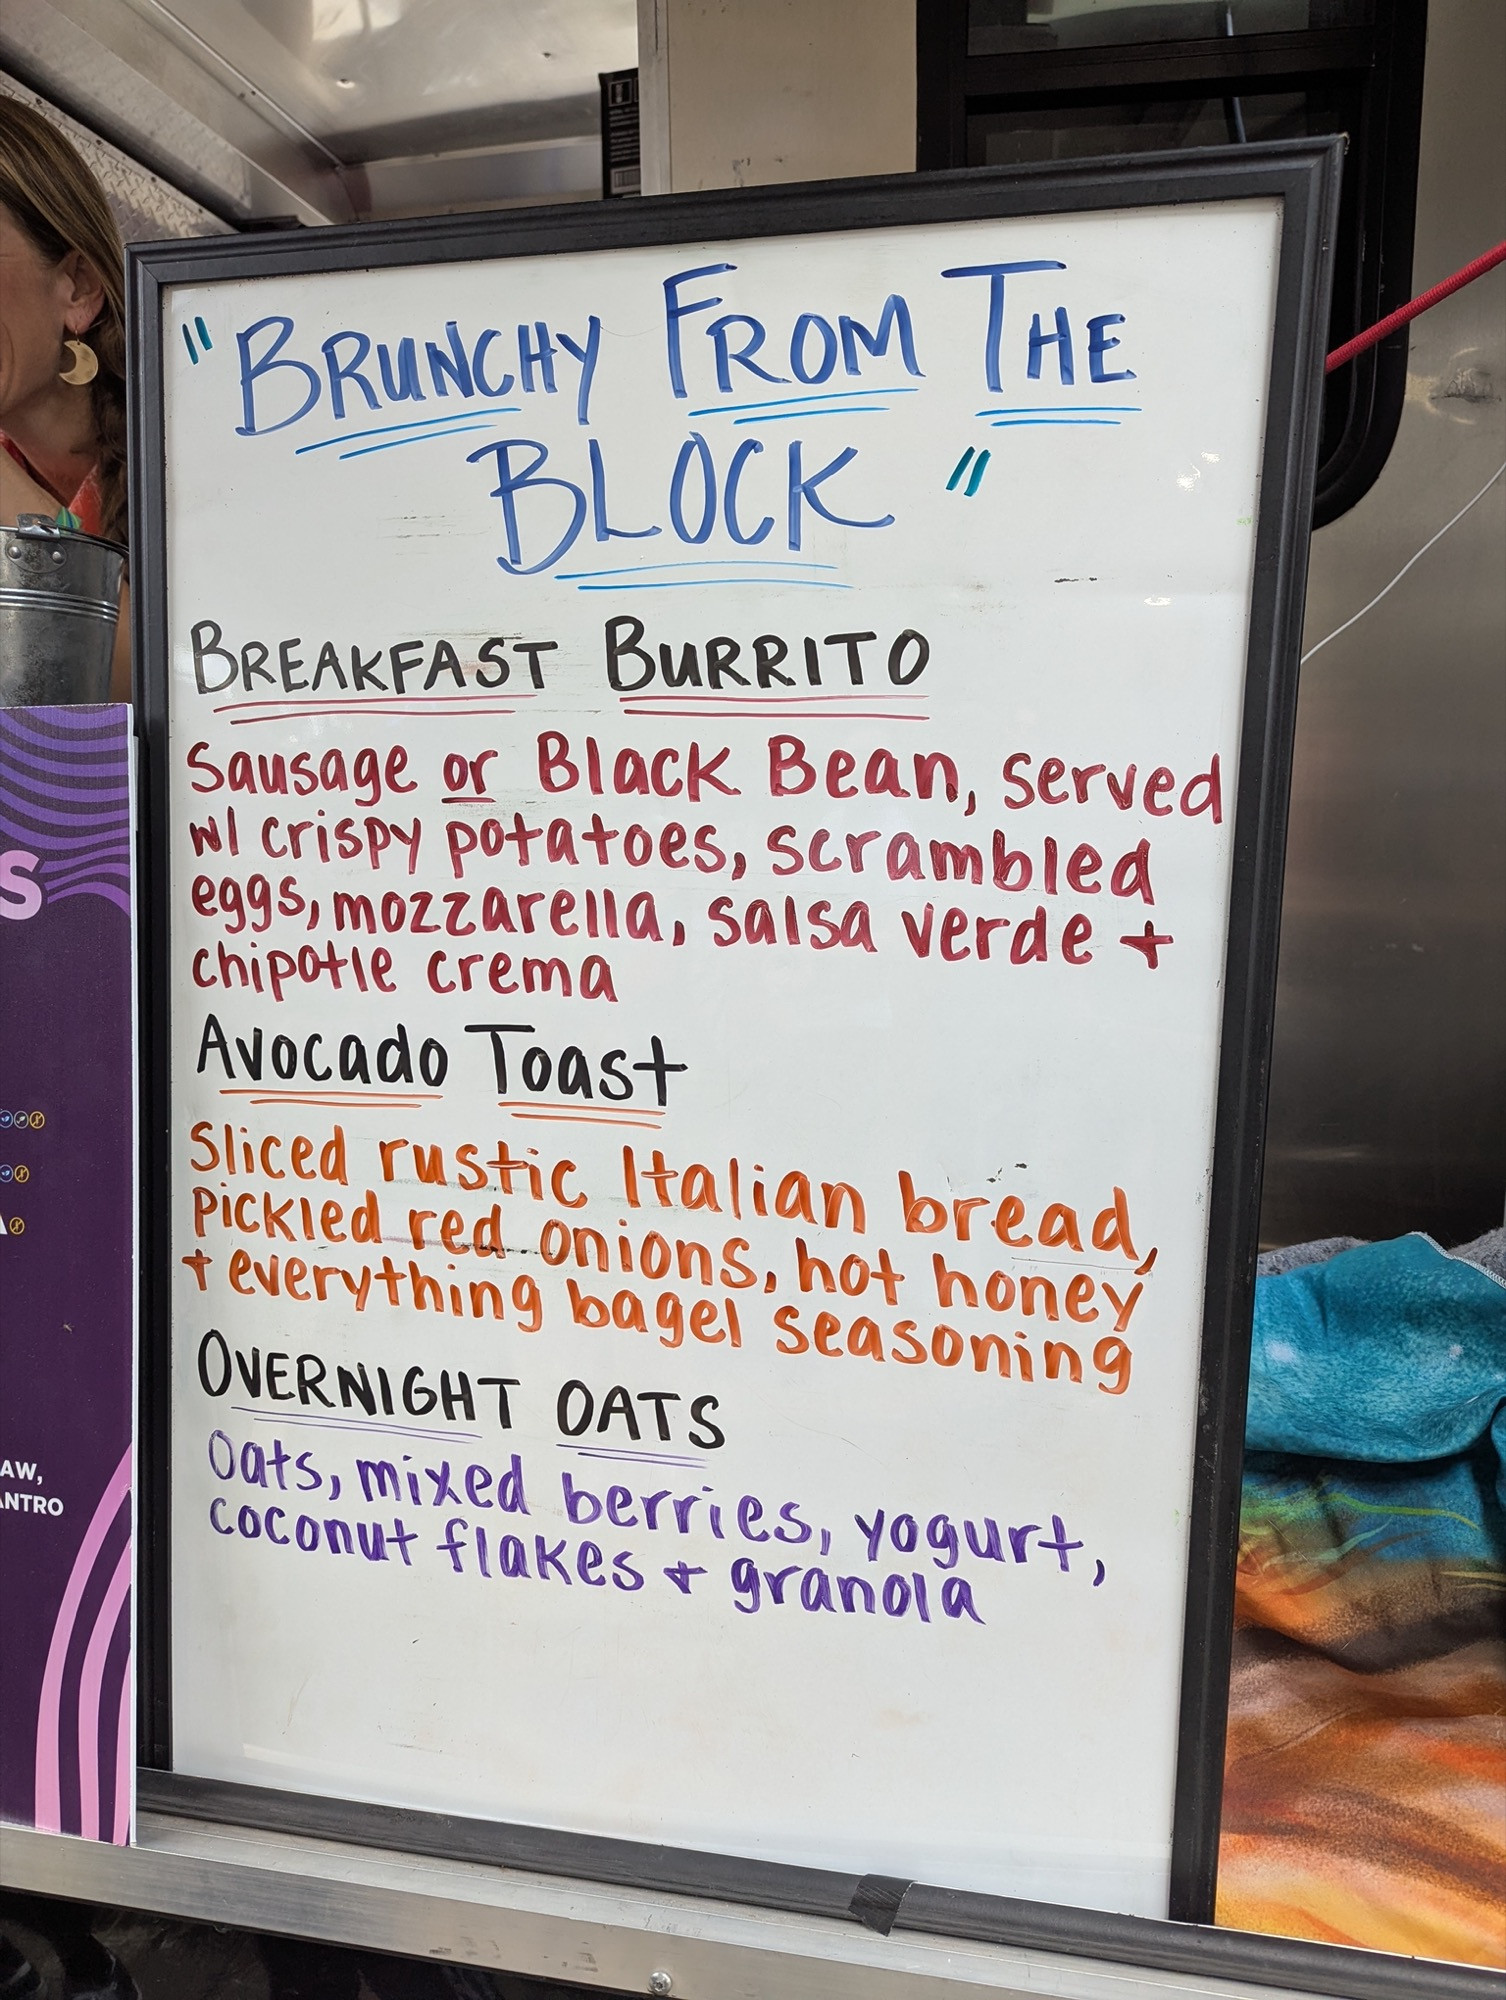 "BRUNCHY FROM THE
BLOCK"
BREAKFAST BURRITO
Sausage or Black Bean, served
w/ crispy potatoes, scrambled
eggs, mozzarella, salsa verde +
chipotle crema
AVOCADO TOAST
Sliced rustic Italian bread,
pickled red onions, hot honey
+ everything bagel seasoning
OVERNIGHT OATS
Oats, mixed berries, yogurt,
coconut flakes + granola
S
A
AW,
ANTRO